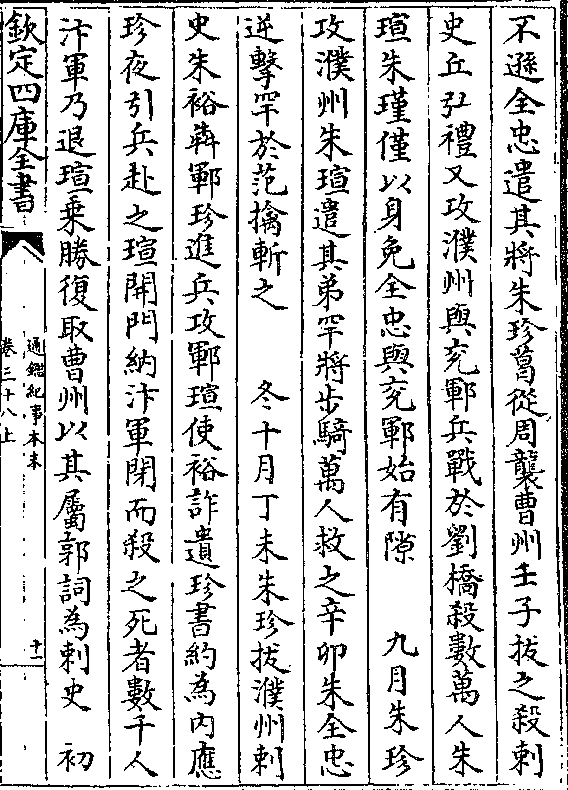 不遜全忠遣其將朱珍葛從周襲曹州壬子拔之殺刺
史丘弘禮又攻濮州與兖鄆兵戰於劉橋殺數萬人朱
瑄朱瑾僅以身免全忠與兖鄆始有隙　九月朱珍
攻濮州朱瑄遣其弟罕將步騎萬人救之辛卯朱全忠
逆擊罕於范擒斬之　冬十月丁未朱珍拔濮州刺
史朱裕奔鄆珍進兵攻鄆瑄使裕詐遺珍書約為内應
珍夜引兵赴之瑄開門納汴軍閉而殺之死者數千人
汴軍乃退瑄乗勝復取曹州以其屬郭詞為刺史　初
欽定四庫全書
通鑑紀事本末
卷三十八上
十一